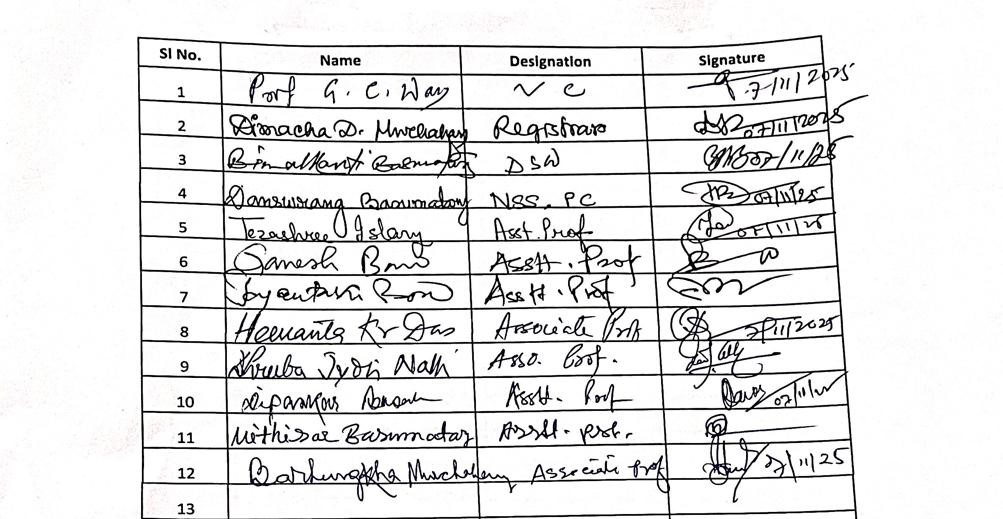 Sl No. Name Designation Signature
1 Prof G. C. Wary V C 7/11/2025
2 Dimacha D. Mwchahary Registrar 07/11/2025
3 Bimalkanti Basumatary DSW 07/11/25
4 Danswrang Basumatary NSS. PC 07/11/25
5 Tezashree Islary Asst. Prof 07/11/25
6 Ganesh Asstt. Prof
7 Asstt. Prof
8 Hemanta Kr Das Associate Prof 7/11/2025
9 Dhruba Jyoti Nath Asso. Prof.
10 Dipankar Asstt. Prof 07/11/25
11 Mithisar Basumatary Asstt. prof.
12 Mwchahary Associate prof 07/11/25
13